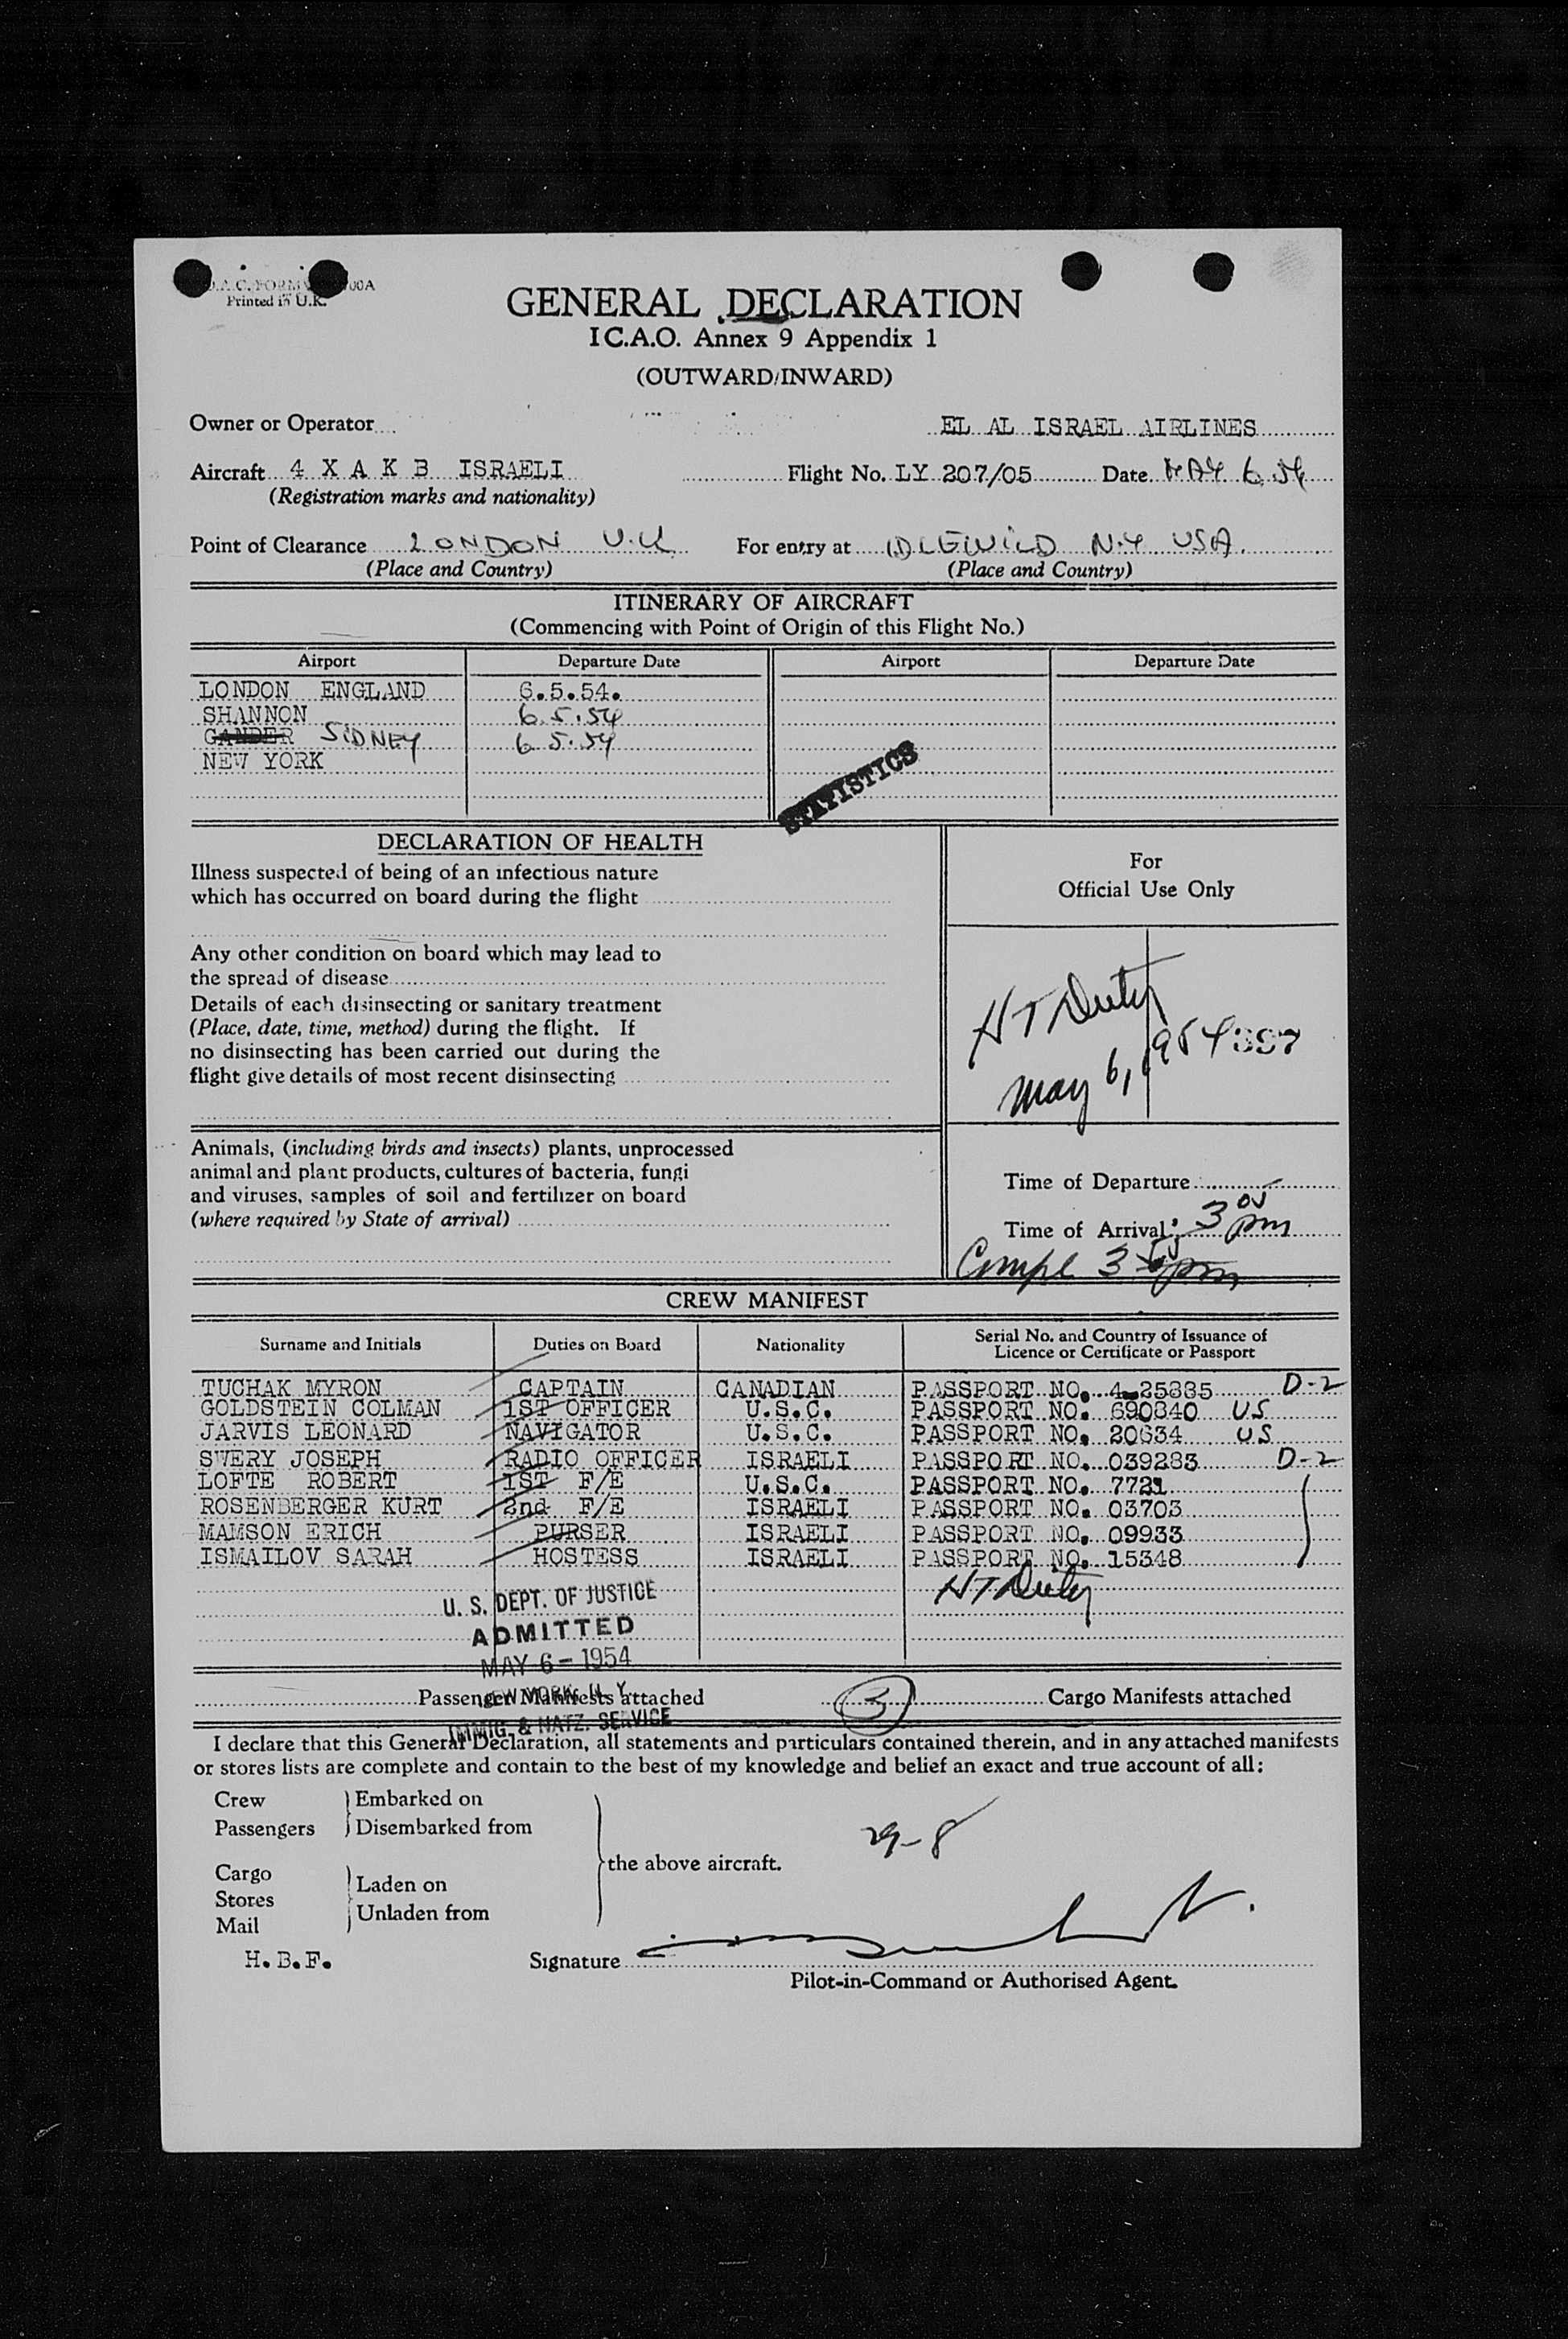 Printed in U.K.
GENERAL DECLARATION
I C.A.O. Annex 9 Appendix 1
(OUTWARD/INWARD)
Owner or Operator EL AL ISRAEL AIRLINES
Aircraft 4 X A K B ISRAELI Flight No. LY 207/05 Date MAY 6.54
(Registration marks and nationality)
Point of Clearance LONDON U.K For entry at IDLEWILD N.Y USA.
(Place and Country) (Place and Country)
ITINERARY OF AIRCRAFT
(Commencing with Point of Origin of this Flight No.)
Airport Departure Date Airport Departure Date
LONDON ENGLAND 6.5.54.
SHANNON 6.5.54
GANDER SIDNEY 6.5.54
NEW YORK
STATISTICS
DECLARATION OF HEALTH
Illness suspected of being of an infectious nature
which has occurred on board during the flight
Any other condition on board which may lead to
the spread of disease
Details of each disinsecting or sanitary treatment
(Place, date, time, method) during the flight. If
no disinsecting has been carried out during the
flight give details of most recent disinsecting
For
Official Use Only
May 6, 1954
Animals, (including birds and insects) plants, unprocessed
animal and plant products, cultures of bacteria, fungi
and viruses, samples of soil and fertilizer on board
(where required by State of arrival)
Time of Departure
Time of Arrival: 3 05 pm
Compl 3 pm
CREW MANIFEST
Surname and Initials Duties on Board Nationality Serial No. and Country of Issuance of
Licence or Certificate or Passport
TUCHAK MYRON CAPTAIN CANADIAN PASSPORT NO. 4-25885 D-2
GOLDSTEIN COLMAN 1ST OFFICER U.S.C. PASSPORT NO. 690840 US
JARVIS LEONARD NAVIGATOR U.S.C. PASSPORT NO. 20634 US
SWERY JOSEPH RADIO OFFICER ISRAELI PASSPORT NO. 039283 D-2
LOFTE ROBERT 1ST F/E U.S.C. PASSPORT NO. 7721
ROSENBERGER KURT 2nd F/E ISRAELI PASSPORT NO. 03703
MAMSON ERICH PURSER ISRAELI PASSPORT NO. 09933
ISMAILOV SARAH HOSTESS ISRAELI PASSPORT NO. 15348
U. S. DEPT. OF JUSTICE
ADMITTED
MAY 6 - 1954
NEW YORK, N. Y.
IMMIG. & NATZ. SERVICE
Passenger Manifests attached 3 Cargo Manifests attached
I declare that this General Declaration, all statements and particulars contained therein, and in any attached manifests
or stores lists are complete and contain to the best of my knowledge and belief an exact and true account of all:
Crew Embarked on
Passengers Disembarked from
the above aircraft.
29-8
Cargo
Stores Laden on
Mail Unladen from
H.B.F. Signature
Pilot-in-Command or Authorised Agent.